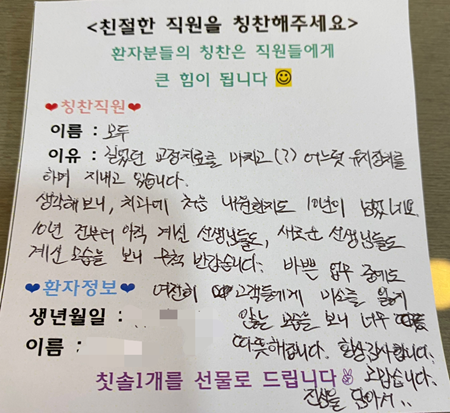 <친절한 직원을 칭찬해주세요>
환자분들의 칭찬은 직원들에게
큰 힘이 됩니다
❤칭찬직원❤
이름 : 모두
이유 : 길었던 교정치료를 마치고(?) 어느덧 유지장치를
하며 지내고 있습니다.
생각해보니, 치과에 처음 내원한지도 10년이 넘었네요.
10년 전부터 아직 계신 선생님들도, 새로운 선생님들도
계신 모습을 보니 무척 반갑습니다. 바쁜 업무 중에도
💙환자정보💙 여전히 고객들에게 미소를 잃지
생년월일 : 않는 모습을 보니 너무
이름 : 따뜻해집니다. 항상감사합니다.
칫솔1개를 선물로 드립니다✌ 고맙습니다.
진심을 담아서..